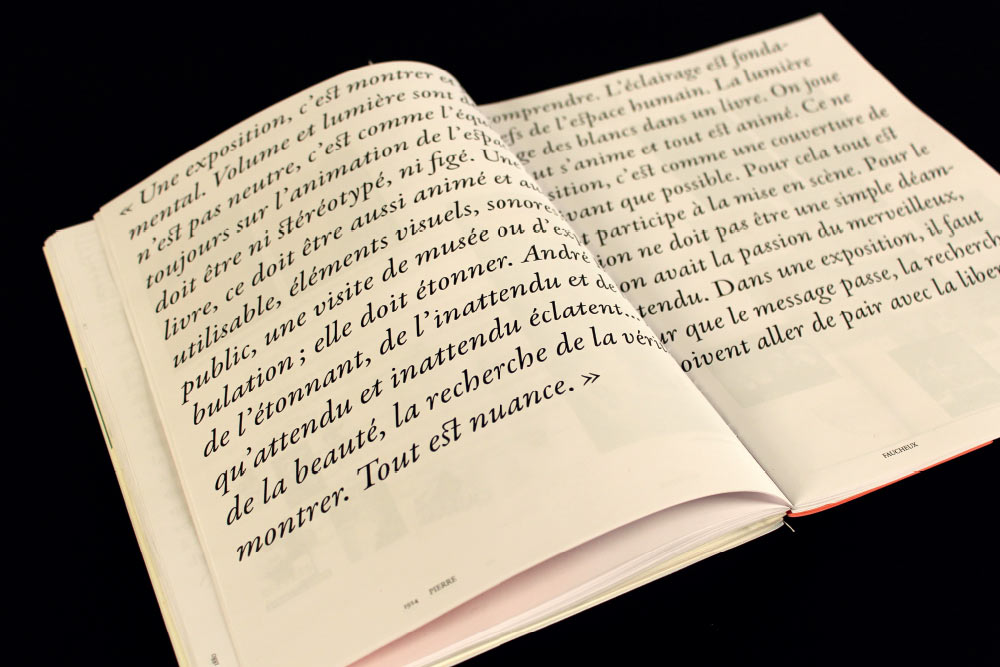 « Une exposition, c'est montrer et
mental. Volume et lumière sont d
n'est pas neutre, c'est comme l'équ
toujours sur l'animation de l'espa
doit être ni stéréotypé, ni figé. Une
livre, ce doit être aussi animé et au
utilisable, éléments visuels, sonores
public, une visite de musée ou d'ex
bulation ; elle doit étonner. André
de l'étonnant, de l'inattendu et de
qu'attendu et inattendu éclatent...
de la beauté, la recherche de la véri
montrer. Tout est nuance. »
1924 PIERRE
omprendre. L'éclairage est fonda-
efs de l'espace humain. La lumière
ge des blancs dans un livre. On joue
ut s'anime et tout est animé. Ce ne
sition, c'est comme une couverture de
vant que possible. Pour cela tout est
t participe à la mise en scène. Pour le
ion ne doit pas être une simple déam-
on avait la passion du merveilleux,
tendu. Dans une exposition, il faut
ur que le message passe, la recherch
oivent aller de pair avec la liber
FAUCHEUX